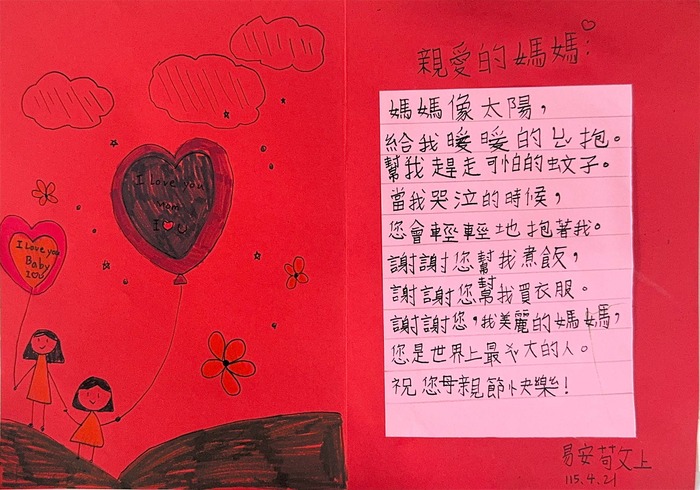 I Love you
mom
I❤U
I Love you
Baby
I❤U
親愛的媽媽:
媽媽像太陽，
給我暖暖的抱。
幫我趕走可怕的蚊子。
當我哭泣的時候，
您會輕輕地抱著我。
謝謝您幫我煮飯，
謝謝您幫我買衣服。
謝謝您，我美麗的媽媽，
您是世界上最大的人。
祝您母親節快樂！
易安
上
115.4.21